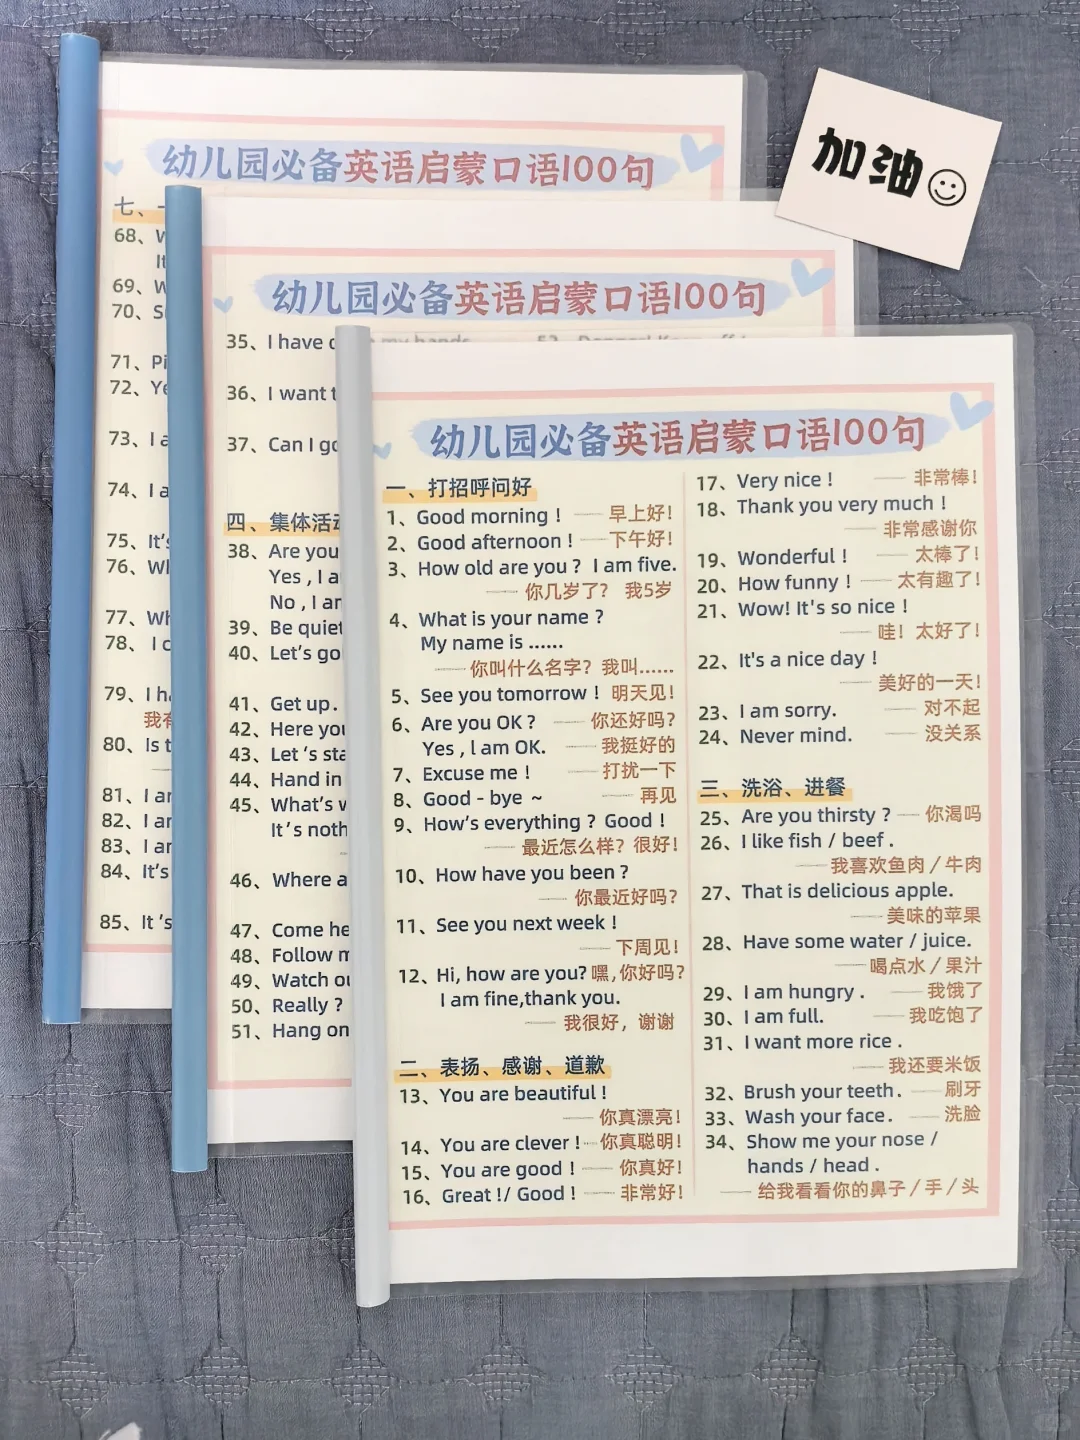 加油
幼儿园必备英语启蒙口语100句
七、
68、
69、
70、
71、
72、
73、I
74、I
75、It's
76、
77、
78、I
79、I
80、Is
81、I
82、I
83、I
84、It's
85、It 's
幼儿园必备英语启蒙口语100句
35、I have
36、I want
37、Can I
四、集体活动
38、Are you
Yes , I
No , I
39、Be quiet
40、Let's go
41、Get up.
42、Here
43、Let 's
44、Hand in
45、What's
It 's
46、Where
47、Come
48、Follow
49、Watch
50、Really ?
51、Hang on
幼儿园必备英语启蒙口语100句
一、打招呼问好
1、Good morning ! —— 早上好!
2、Good afternoon ! —— 下午好!
3、How old are you ? I am five.
—— 你几岁了? 我5岁
4、What is your name ?
My name is ......
—— 你叫什么名字? 我叫......
5、See you tomorrow ! 明天见!
6、Are you OK ? —— 你还好吗?
Yes , l am OK. —— 我挺好的
7、Excuse me ! —— 打扰一下
8、Good - bye ~ —— 再见
9、How's everything ? Good !
—— 最近怎么样? 很好!
10、How have you been ?
—— 你最近好吗?
11、See you next week !
—— 下周见!
12、Hi, how are you? 嘿,你好吗?
I am fine,thank you.
—— 我很好，谢谢
二、表扬、感谢、道歉
13、You are beautiful !
—— 你真漂亮!
14、You are clever ! —— 你真聪明!
15、You are good ! —— 你真好!
16、Great !/ Good ! —— 非常好!
17、Very nice ! —— 非常棒!
18、Thank you very much !
—— 非常感谢你
19、Wonderful ! —— 太棒了!
20、How funny ! —— 太有趣了!
21、Wow! It's so nice !
—— 哇! 太好了!
22、It's a nice day !
—— 美好的一天!
23、I am sorry. —— 对不起
24、Never mind. —— 没关系
三、洗浴、进餐
25、Are you thirsty ? —— 你渴吗
26、I like fish / beef .
—— 我喜欢鱼肉 / 牛肉
27、That is delicious apple.
—— 美味的苹果
28、Have some water / juice.
—— 喝点水 / 果汁
29、I am hungry . —— 我饿了
30、I am full. —— 我吃饱了
31、I want more rice .
—— 我还要米饭
32、Brush your teeth . —— 刷牙
33、Wash your face . —— 洗脸
34、Show me your nose /
hands / head .
—— 给我看看你的鼻子 / 手 / 头